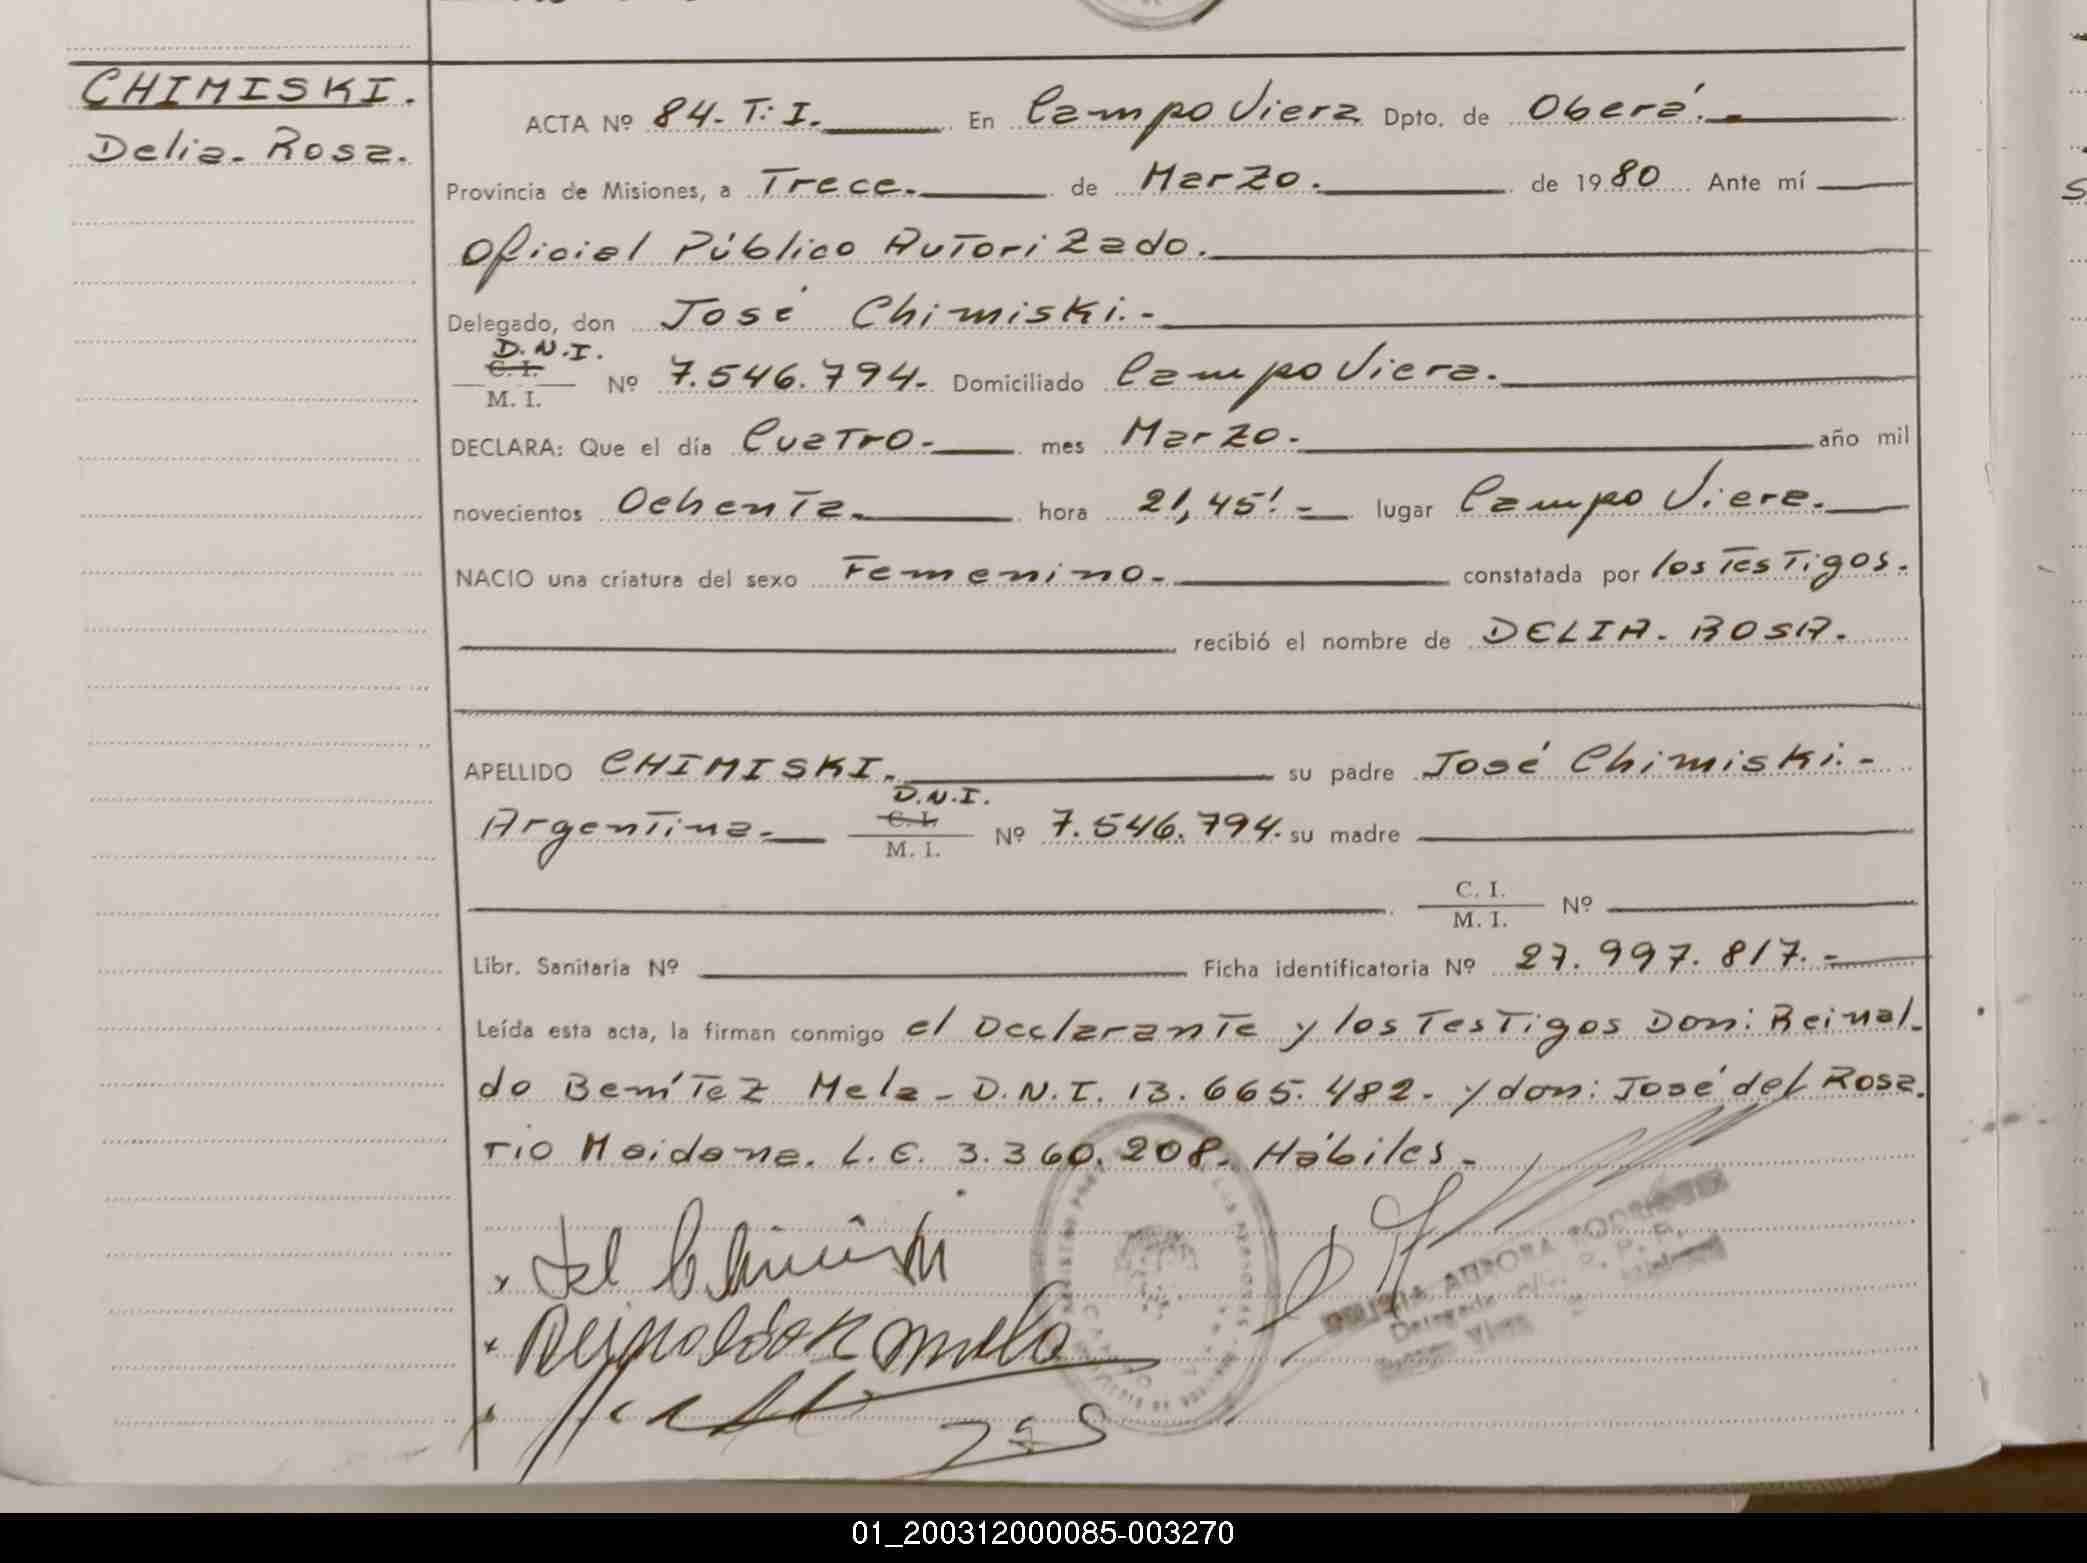 CHIMISKI.
Delia. Rosa.
ACTA Nº 84. T: I. En Campo Viera Dpto. de Oberá.
Provincia de Misiones, a Trece. de Marzo. de 1980 Ante mí
Oficial Público Autorizado.
Delegado, don José Chimiski.-
D.N.I.
C. I.
M. I. Nº 7.546.794. Domiciliado Campo Viera.
DECLARA: Que el día Cuatro. mes Marzo. año mil
novecientos Ochenta. hora 21,45'.- lugar Campo Viera.
NACIO una criatura del sexo Femenino. constatada por los Testigos.
recibió el nombre de DELIA. ROSA.
APELLIDO CHIMISKI. su padre José Chimiski.-
D.N.I.
Argentina. C. I. M. I. Nº 7.546.794. su madre
C. I.
M. I. Nº
Libr. Sanitaria Nº Ficha identificatoria Nº 27.997.817.-
Leída esta acta, la firman conmigo el Declarante y los Testigos Don: Reinal.
do Benítez Mela - D.N.I. 13.665.482. y don: José del Rosa.
rio Maidana. L.E. 3.360.208. Hábiles.-
DELICIA AURORA RODRIGUEZ
01_200312000085-003270